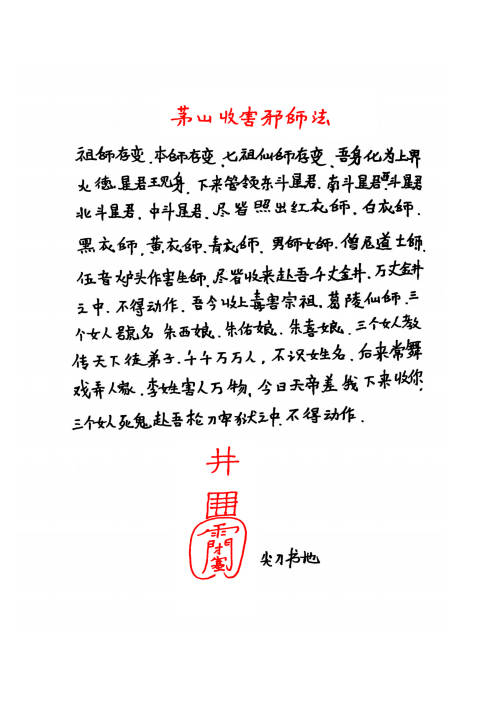 茅山收害邪師法
祖師存变.本師存变.七祖仙師存变.吾身化为上界
火德星君王见身.下来管领东斗星君.南斗星君.西斗星君
北斗星君.中斗星君.尽皆照出红衣師.白衣師.
黑衣師.黄衣師.青衣師.男師女師.僧尼道士師.
伍音炉头作害生師.尽皆收来赴吾千丈金井.万丈金井
之中.不得动作.吾今收上毒害宗祖.葛陵仙師.三
个女人號名 朱西娘.朱估娘.朱喜娘.三个女人教
传天下徒弟子.千千万万人,不识女姓名.后来常舞
戏弄人家.李姓害人万物,今日天帝差我下来收你,
三个女人死鬼赴吾枪刀牢狱之中.不得动作.
井
尖刀书地